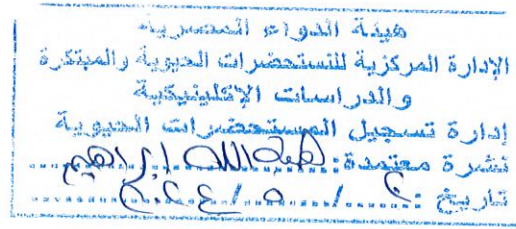 هيئة الدواء المصرية
الإدارة المركزية للمستحضرات الحيوية والمبتكرة
والدراسات الإكلينيكية
إدارة تسجيل المستحضرات الحيوية
نشرة معتمدة: هبة الله ابراهيم
تاريخ / ٥ / ٢٠٢٤